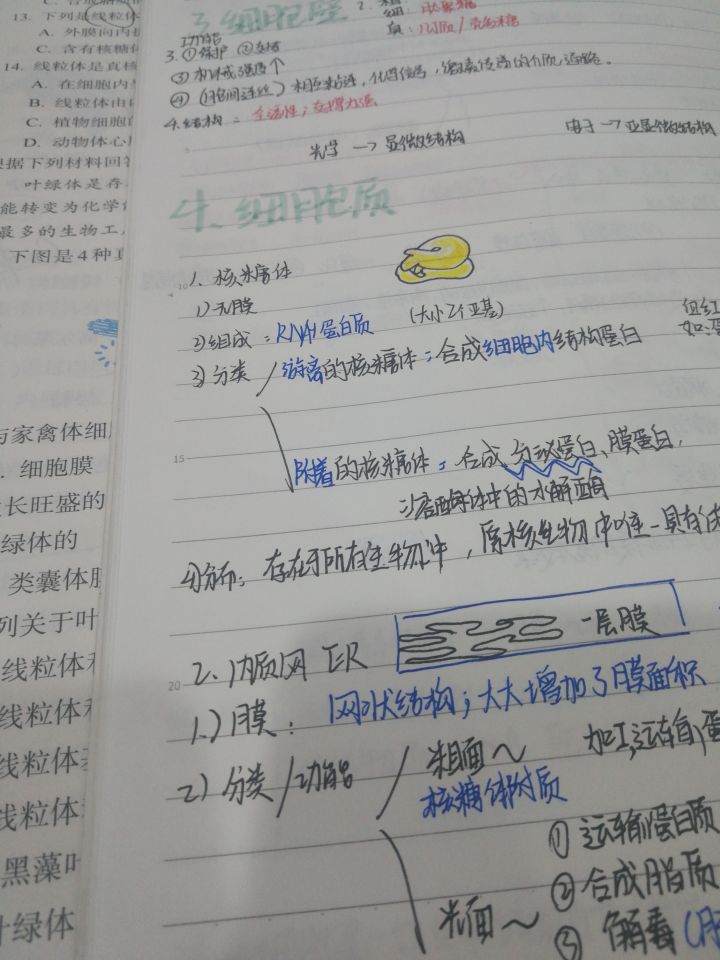 13. 下列是线粒体
A. 外膜向内折
C. 含有核糖体
14. 线粒体是真核
A. 在细胞内
B. 线粒体由
C. 植物细胞
D. 动物体心
根据下列材料回答
叶绿体是存
能转变为化学
最多的生物工
下图是4种
与家禽体细
. 细胞膜
长旺盛的
绿体的
类囊体
列关于叶
线粒体
线粒体
线粒体
线粒体
黑藻叶
叶绿体
3. 细胞壁
功能
3. ① 保护 ② 支持
③ 机械强度
④ (胞间连丝) 相互粘连,化学信号,
4. 结构: 全透性;支撑力强
光学 → 显微结构
电子 → 亚显微结构
4. 细胞质
1. 核糖体
1) 无膜
2) 组成:RNA+蛋白质 (大小2个亚基)
3) 分类 / 游离的核糖体:合成细胞内结构蛋白
附着的核糖体:合成分泌蛋白、膜蛋白,
溶酶体中的水解酶
4) 分布:存在于所有生物中,原核生物中唯一具有
2. 内质网 ER
一层膜
1.) 膜:网状结构;大大增加了膜面积
2) 分类/功能 / 粗面~ 加工,运输,蛋
核糖体附质
① 运输蛋白质
光面~ ② 合成脂质
③ 解毒